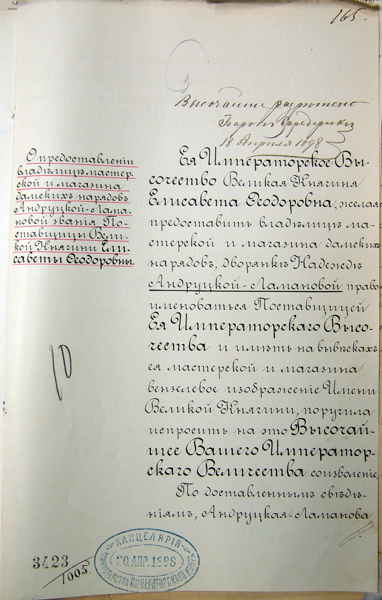 165.
Высочайше разрешено
Баронъ Фредериксъ
18 Апрѣля 1898
О предоставленіи
владѣлицѣ мастер-
ской и магазина
дамскихъ нарядовъ
Андруцкой-Лама-
новой званія По-
ставщицы Вели-
кой Княгини Ели-
саветы Ѳеодоровны.
Ея Императорское Вы-
сочество Великая Княгиня
Елисавета Ѳеодоровна, желая
предоставить владѣлицѣ ма-
стерской и магазина дамскихъ
нарядовъ, дворянкѣ Надеждѣ
Андруцкой-Ламановой право
именоваться Поставщицей
Ея Императорскаго Высо-
чества и имѣть на вывѣскахъ
ея мастерской и магазина
вензелевое изображеніе Имени
Великой Княгини, поручила
испросить на это Высочай-
шее Вашего Император-
скаго Величества соизволеніе.
По доставленнымъ свѣдѣ-
ніямъ, Андруцкая-Ламанова
10
КАНЦЕЛЯРІЯ
20 АПР. 1898
МИНИСТЕРСТВА ИМПЕРАТОРСКАГО ДВОРА
3423
1005.